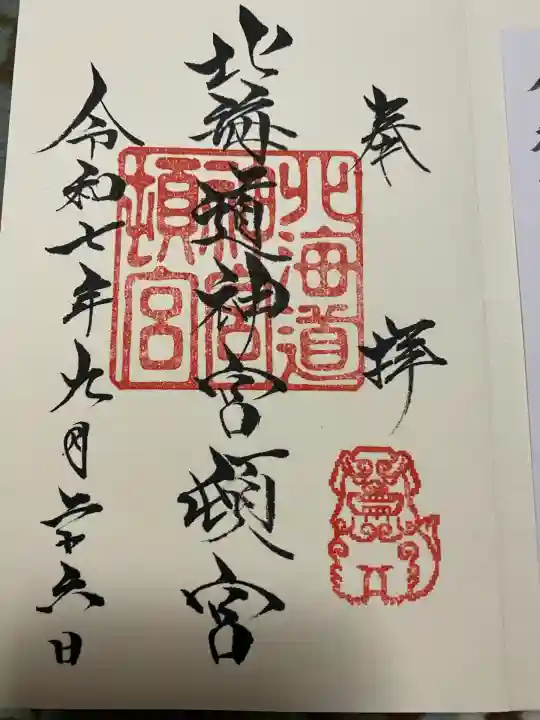 奉拝
北海道神宮頓宮
北海道神宮頓宮
令和七年九月廿六日